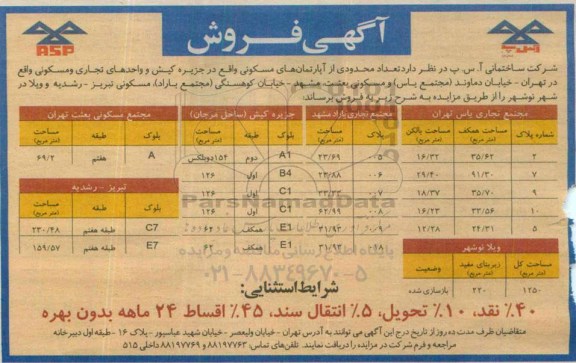 آگهی فروش
ASP
آ.س.پ
شرکت ساختمانی آ. س. پ در نظر دارد تعداد محدودی از آپارتمان‌های مسکونی واقع در جزیره کیش و واحدهای تجاری و مسکونی واقع
در تهران - خیابان دماوند (مجتمع یاس) و مسکونی بعثت، مشهد - خیابان کوهسنگی (مجتمع باراد)، مسکونی تبریز - رشدیه و ویلا در
شهر نوشهر را از طریق مزایده به شرح زیر به فروش برساند:
مجتمع تجاری یاس تهران
شماره پلاک مساحت همکف (متر مربع) مساحت بالکن (متر مربع)
۲ ۳۵/۶۲ ۱۶/۳۲
۷ ۹۱/۳۰ ۲۹/۴۰
۹ ۳۵/۷۰ ۱۸/۳۷
۱۰ ۳۳/۵۶ ۱۶/۲۳
۵ ۲۴/۳۱ ۱۲/۲۸
مجتمع تجاری باراد مشهد
پلاک مساحت (متر مربع)
۰۰۵ ۲۳/۶۹
۰۰۶ ۲۳/۸۸
۰۰۷
۰۰۸ ۶۲/۹۹
۳۱/۹۳
جزیره کیش (ساحل مرجان)
بلوک طبقه مساحت (متر مربع)
A1 دوم ۱۵۴ دوبلکس
B4 اول ۱۲۶
C1 اول ۱۲۶
C1 اول ۱۲۶
E1 همکف ۶۲
E1 همکف ۶۲
مجتمع مسکونی بعثت تهران
بلوک طبقه مساحت (متر مربع)
A هفتم ۶۹/۲
تبریز - رشدیه
بلوک طبقه مساحت (متر مربع)
C7 طبقه هفتم ۲۳۰/۴۸
E7 طبقه هفتم ۱۵۹/۵۷
ویلا نوشهر
مساحت کل (متر مربع) زیربنای مفید (متر مربع) وضعیت
۱۲۵۰ ۲۲۰ بازسازی شده
ParsNamadData
پایگاه اطلاع رسانی مناقصه و مزایده
۰۲۱-۸۸۳۴۹۶۷۰-۵
شرایط استثنایی:
۴۰٪ نقد، ۱۰٪ تحویل، ۵٪ انتقال سند، ۴۵٪ اقساط ۲۴ ماهه بدون بهره
متقاضیان ظرف مدت ده روز از تاریخ درج این آگهی می توانند به آدرس تهران - خیابان ولیعصر - خیابان شهید عباسپور - پلاک ۱۶ - طبقه اول دبیرخانه
مراجعه و فرم شرکت در مزایده را دریافت نمایند. تلفن‌های تماس: ۸۸۱۹۷۷۶۳ و ۸۸۱۹۷۷۶۹ داخلی ۵۱۵